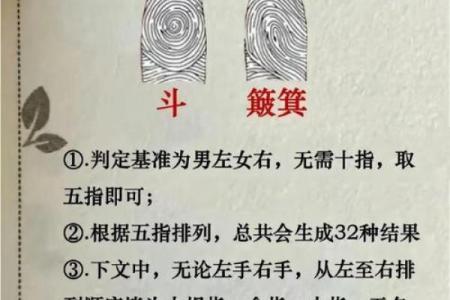 斗 簸箕
①.判定基准为男左女右，无需十指，取
五指即可；
②.根据五指排列，总共会生成32种结果
③.下文中，无论左手右手，从左至右排